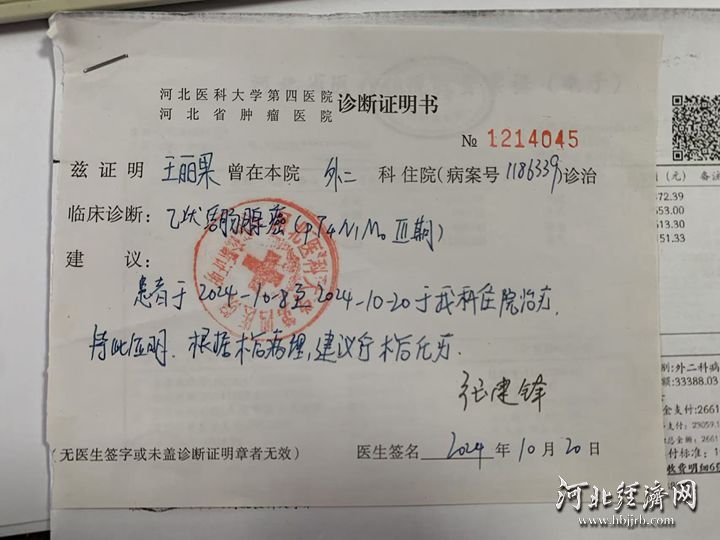 河北医科大学第四医院
河北省肿瘤医院
诊断证明书
№ 1214045
兹证明 王丽果 曾在本院 外二 科住院(病案号 1186339)诊治
临床诊断: 乙状结肠腺癌(pT4N1M0 III期)
建议:
患者于2024-10-8至2024-10-20于我科住院治疗,
特此证明. 根据术后病理,建议行术后化疗.
张建锋
(无医生签字或未盖诊断证明章者无效)
医生签名 2024 年 10 月 20 日
(元) 备
372.39
553.00
513.30
151.33
别:外二科病
额:33388.03
金支付:2661
支付:23059.1
总金额:2661
付标准:1
收费明细
河北经济网
www.hbjjrb.com